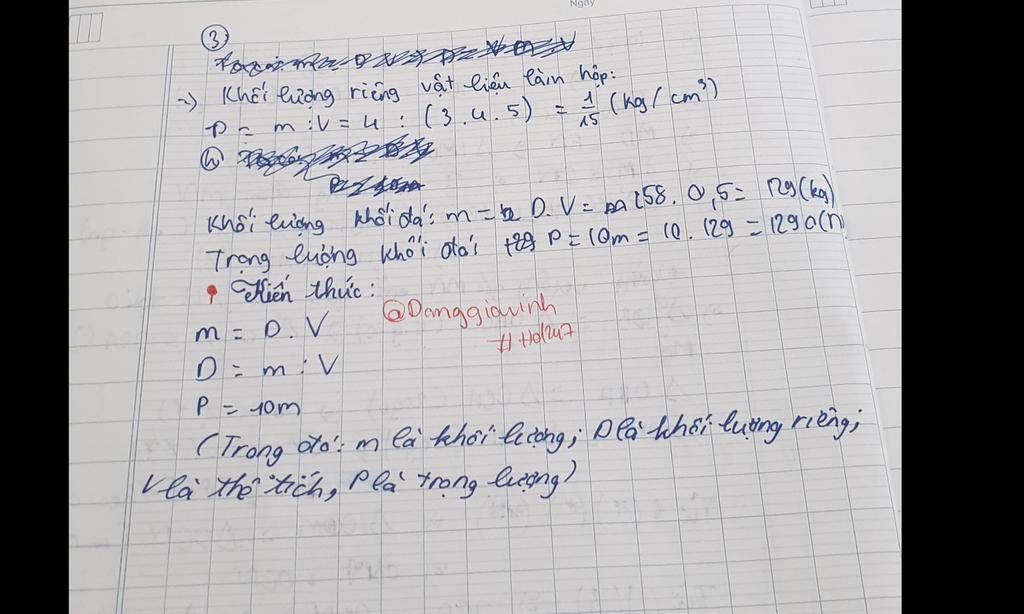 Ngày
③
→) Khối lượng riêng vật liệu làm hộp:
D = m : V = 4 : (3.4.5) = 1/15 (kg/cm³)
b)
Khối lượng khối đá: m = D.V = 258.0,5 = 129(kg)
Trọng lượng khối đá: P = 10m = 10.129 = 1290(N)
Kiến thức:
@Danggiavinh
m = D.V
#Hd247
D = m : V
P = 10m
(Trong đó: m là khối lượng; D là khối lượng riêng;
V là thể tích, P là trọng lượng)